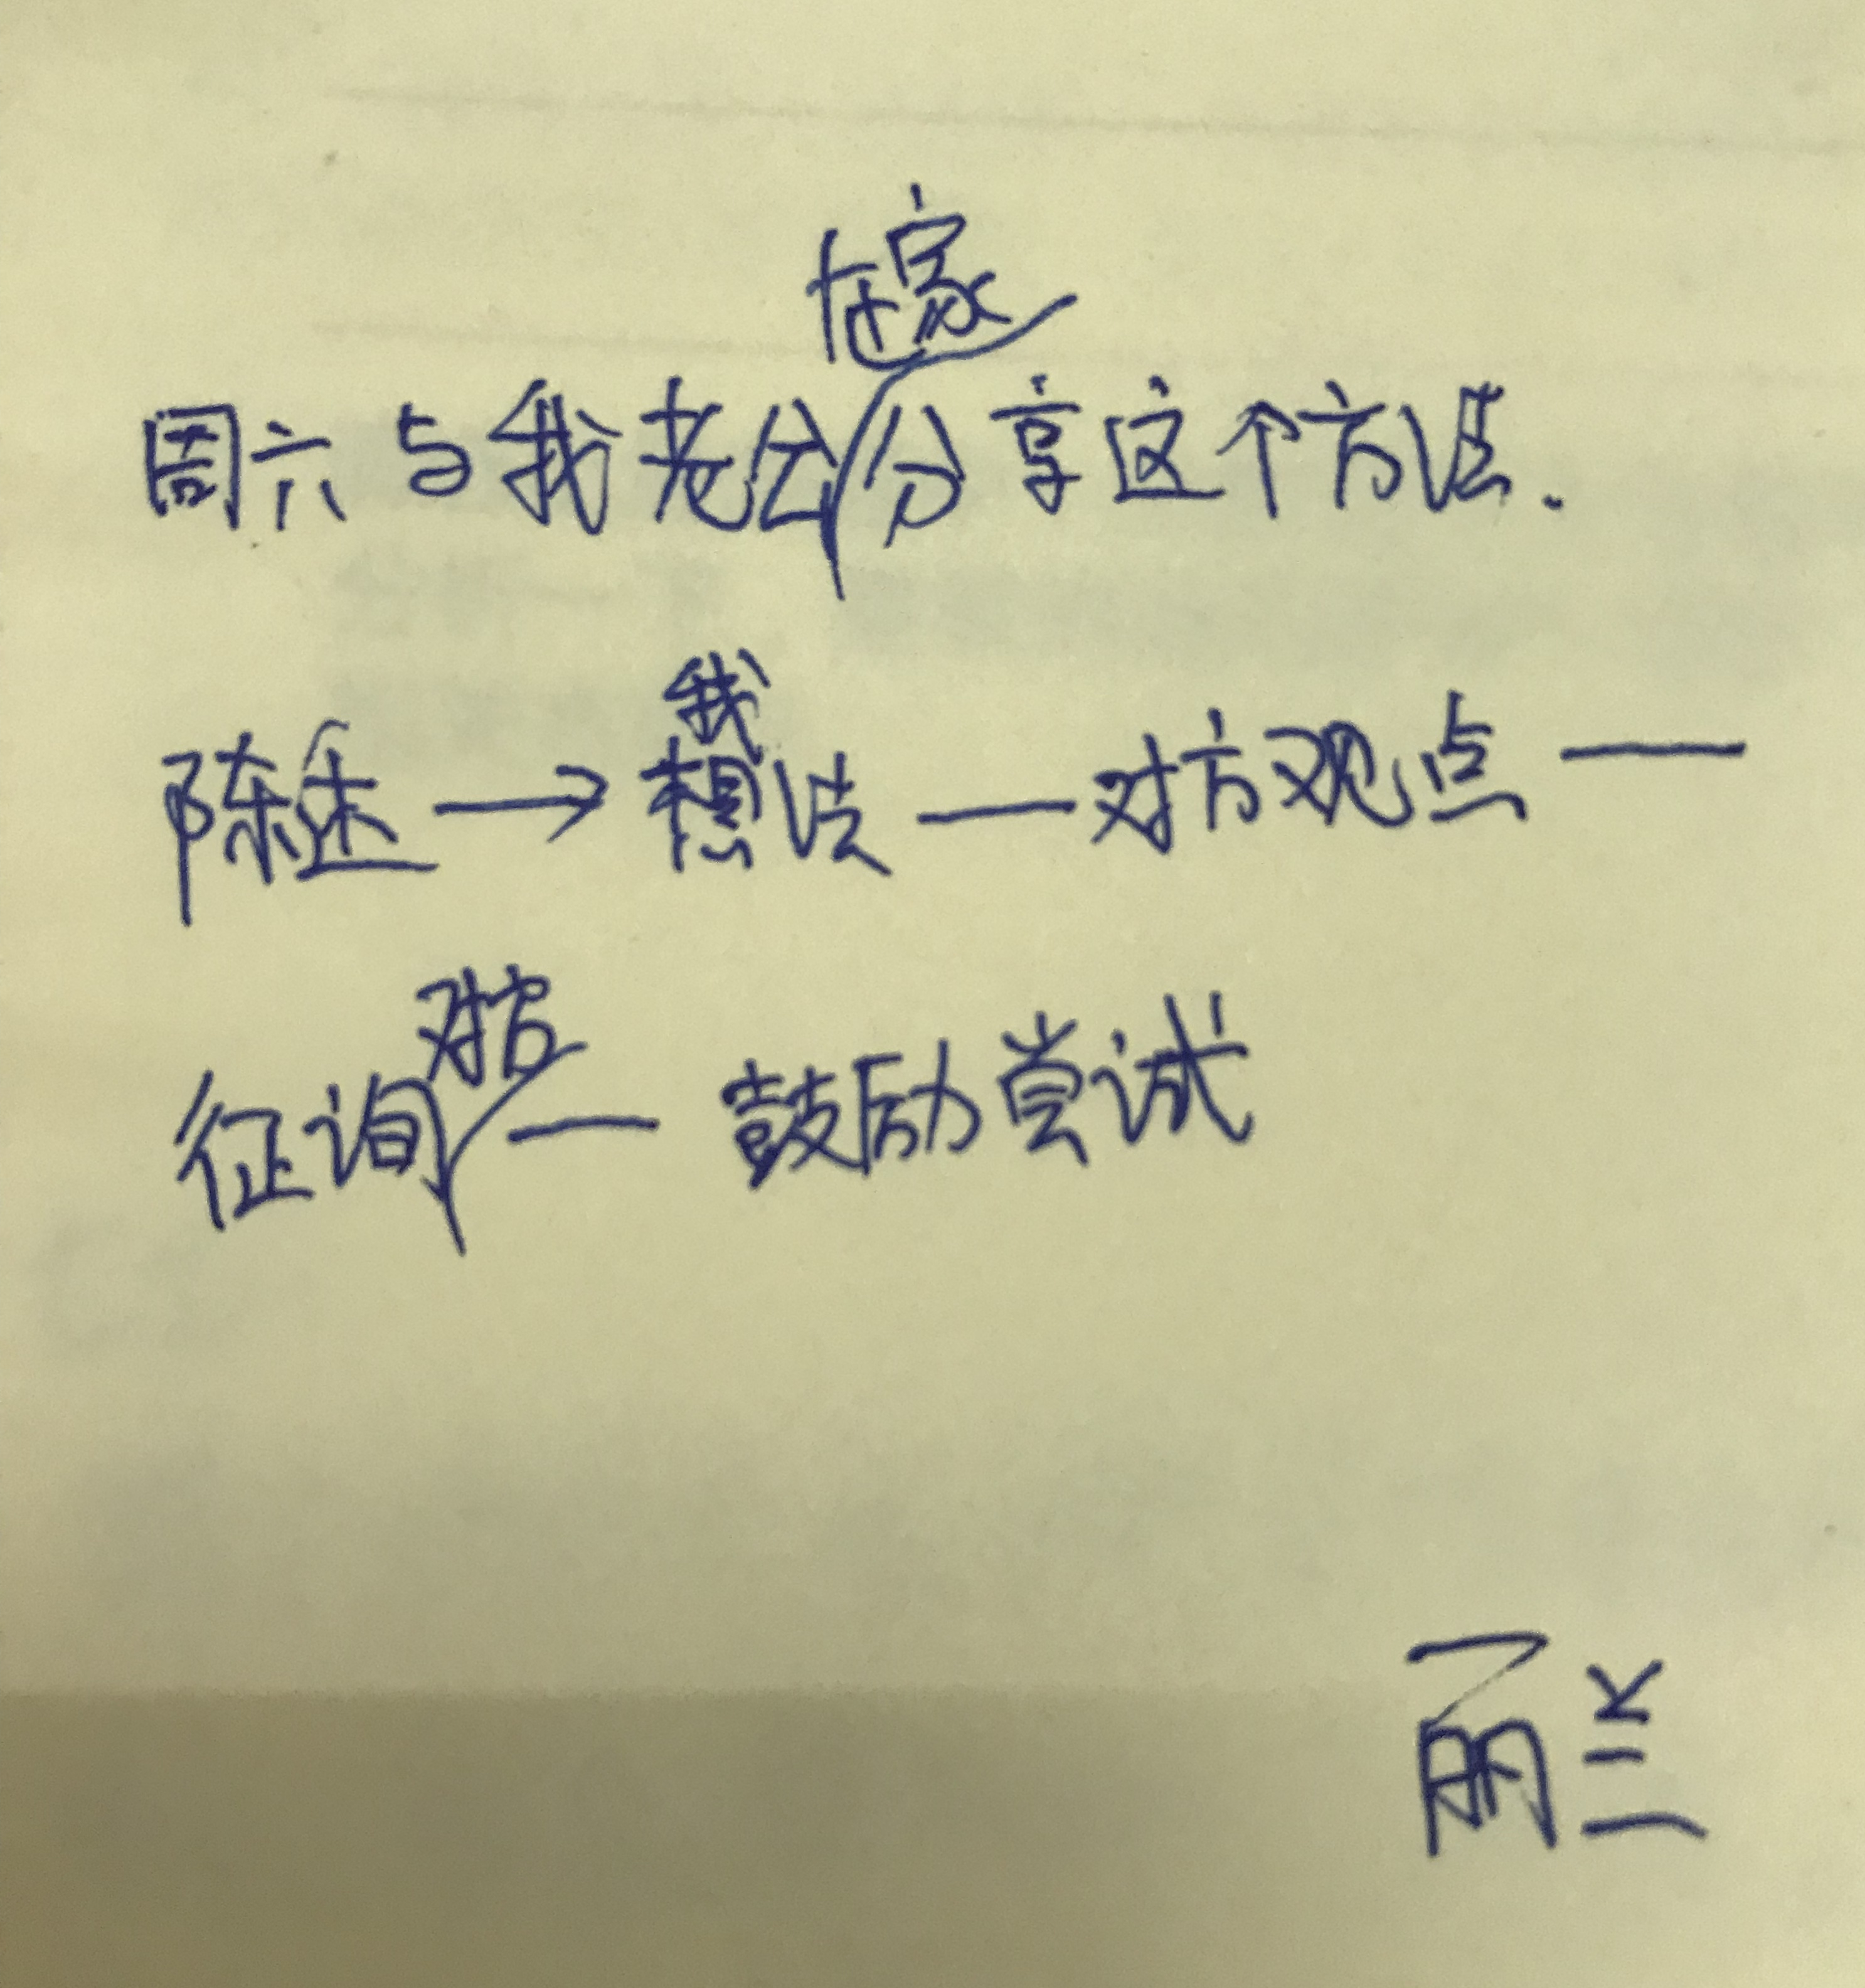 周六与我老公在家分享这个方法.
陈述→我想法—对方观点—
征询对方—鼓励尝试
丽兰